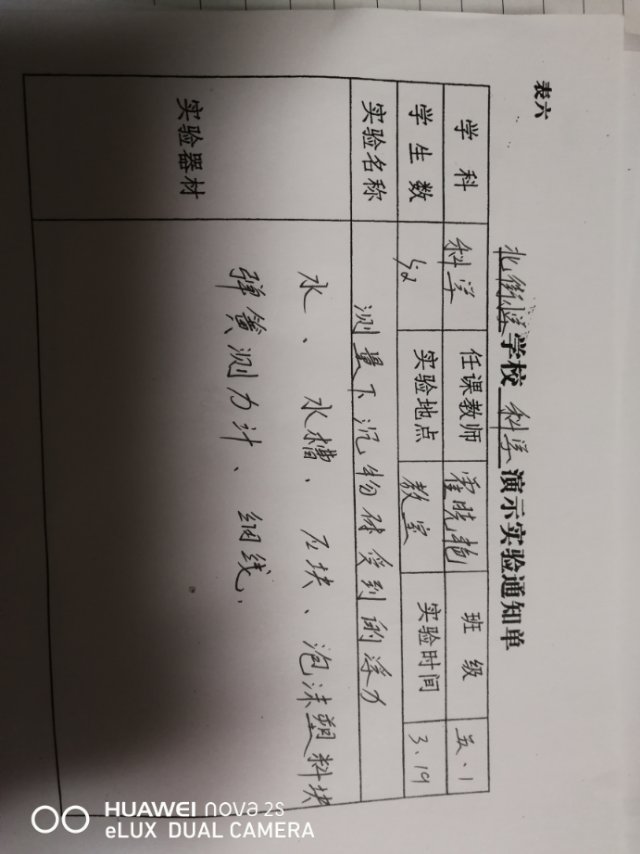 表六
北街小学学校 科学 演示实验通知单
学科 科学 任课教师 霍晓艳 班级 五、1
学生数 52 实验地点 教室 实验时间 3.19
实验名称 测量下沉物体受到的浮力
实验器材 水、水槽、石块、泡沫塑料块
弹簧测力计、细线.
HUAWEI nova 2s
eLUX DUAL CAMERA